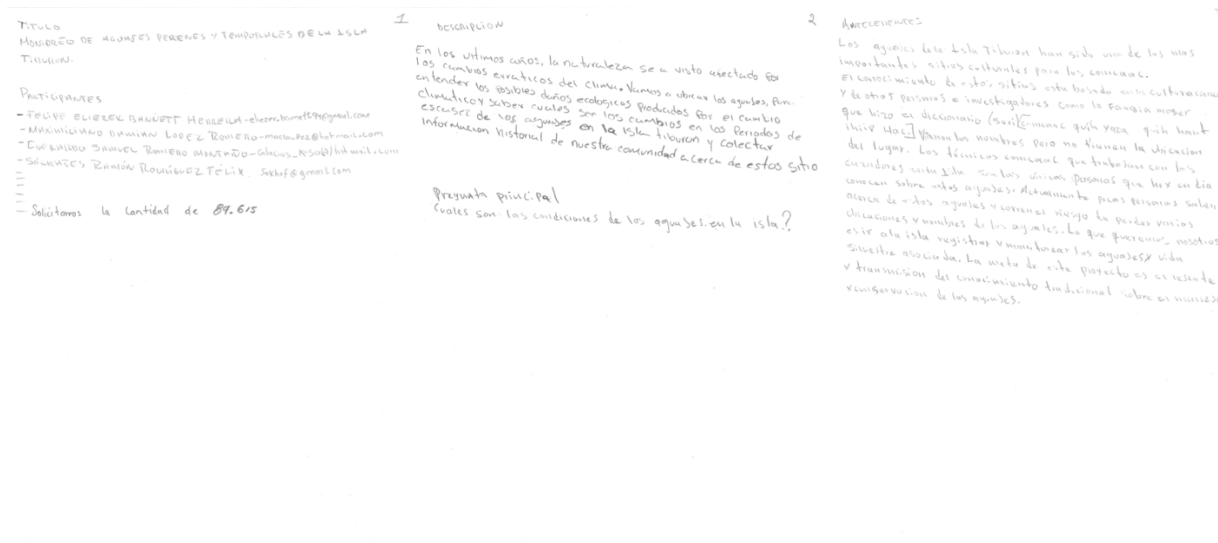 TITULO
MONIOREO DE AGUAJES PERENES Y TEMPORALES DE LA ISLA
TIBURON.
PARTICIPANTES
- FELIPE ELIEZER BARNETT HERRERA-
- MAXIMILIANO DAMIAN LOPEZ ROMERO-
- SAMUEL ROMERO MONTAÑO-
- RAMÓN RODRÍGUEZ FÉLIX.
- Solicitamos la cantidad de 89.615
1
DESCRIPCION
En los ultimos años, la naturaleza se a visto afectado por
los cambios erraticos del clima. Vamos a ubicar los aguajes, para
entender los posibles daños ecologicos producidos por el cambio
climatico y saber cuales son los cambios en los periodos de
escases de los aguajes en la isla tiburon y colectar
informacion historial de nuestra comunidad acerca de estos sitio
Pregunta principal
Cuales son las condiciones de los aguajes en la isla?
2
ANTECEDENTES
Los aguajes de la Isla Tiburon han sido uno de los mas
importantes sitios culturales para los comcaac.
El conocimiento de estos sitios esta basado en la cultura
y de otras personas e investigadores como la familia moser
que hizo el diccionario quih yaza quih hant
ihiip hac] los nombres pero no tienen la ubicacion
del lugar. Los técnicos comcaac que trabajan con los
son las unicas personas que hoy en dia
conocen sobre estos aguajes. Actualmente pocas personas saben
acerca de estos aguajes y corremos riesgo de perder varios
ubicaciones y nombres de los aguajes. Lo que queremos nosotros
es ir a la isla registrar y monitorear los aguajes y vida
silvestre asociada. La meta de este proyecto es
y transmision del conocimiento tradicional sobre
y conservacion de los aguajes.